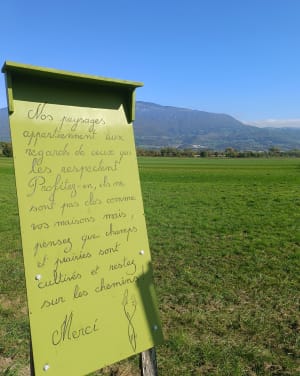 Nos paysages
appartiennent aux
regards de ceux qui
les respectent
Profitez-en, ils ne
sont pas clos comme
vos maisons mais,
pensez que champs
et prairies sont
cultivés et restez
sur les chemins
Merci